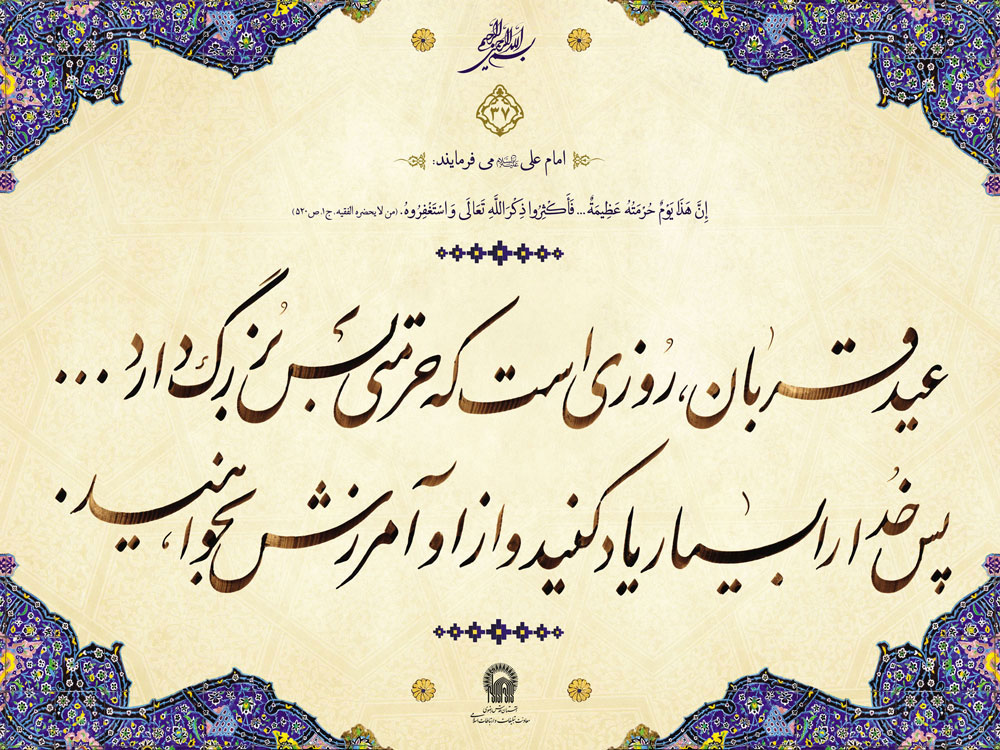 بسم الله الرحمن الرحیم
۳۷
امام علی علیه‌السلام می فرمایند:
إِنَّ هَذَا يَوْمٌ حُرْمَتُهُ عَظِيمَةٌ... فَأَكْثِرُوا ذِكْرَ اللَّهِ تَعَالَى وَ اسْتَغْفِرُوهُ. (من لا يحضره الفقيه، ج۱، ص۵۲۰)
عید قربان، رُوزی است که حرمتی بس بُزرگ دارد ...
پس خُدا را بسیار یاد کنید و از او آمرزش بخواهید.
آستان قدس رضوی
معاونت تبلیغات و ارتباطات اسلامی